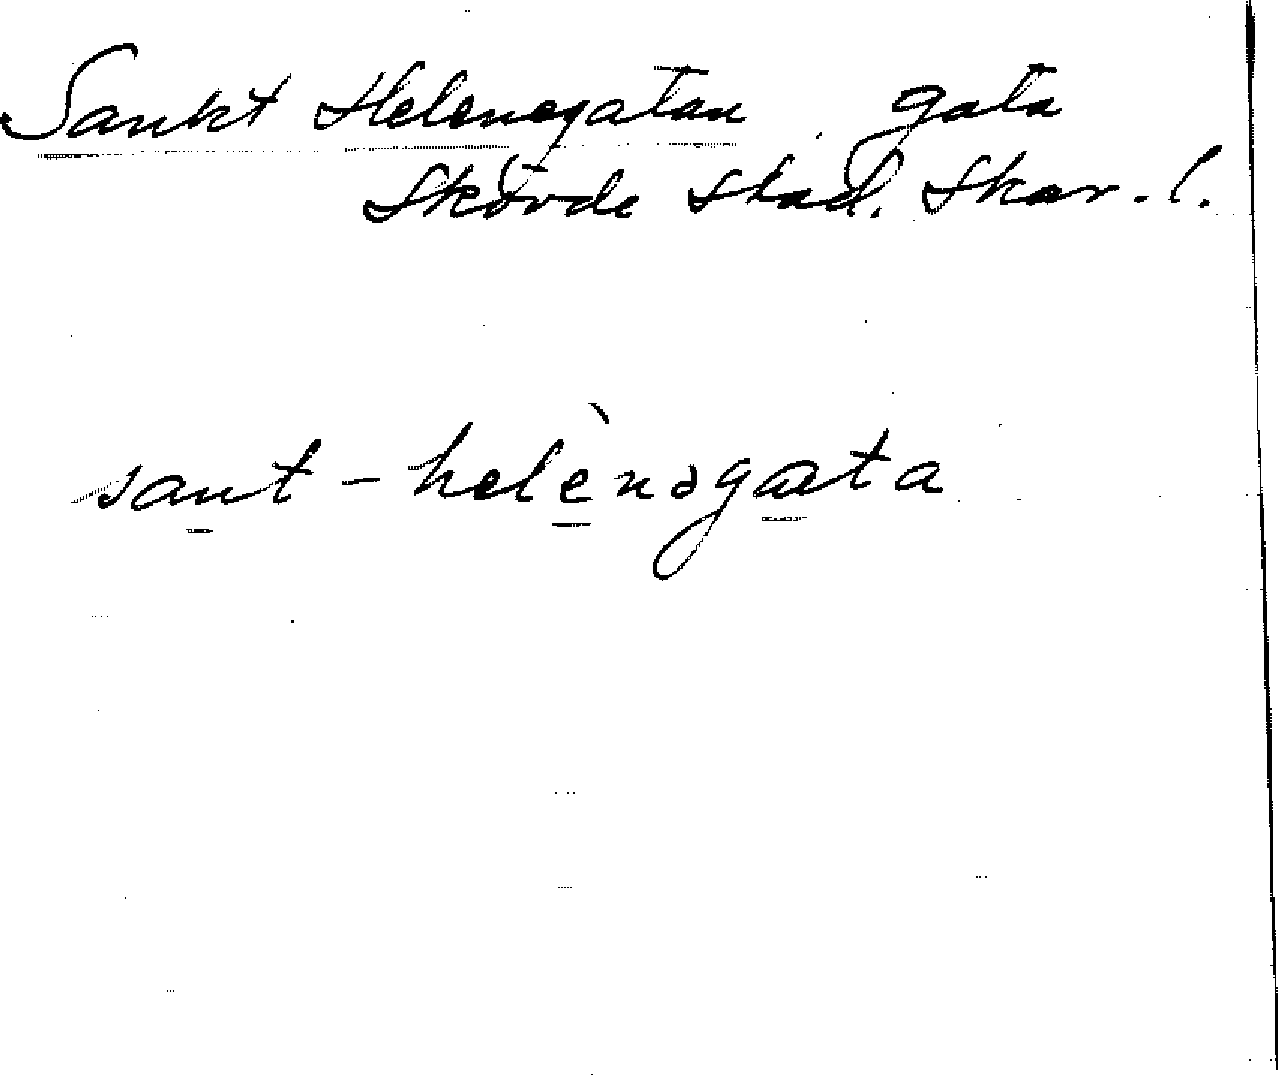 Sankt Helenegatan gata
Skövde stad. Skar. l.
sant - helènəgata